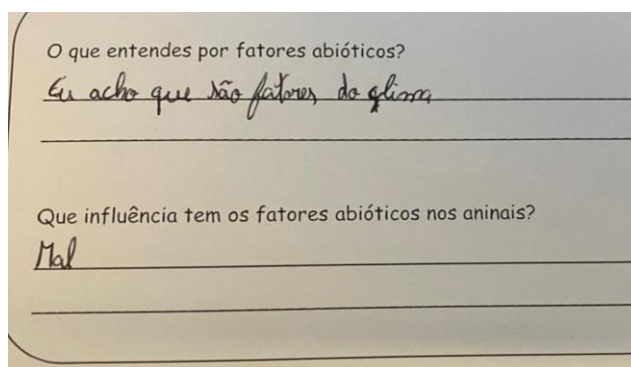 O que entendes por fatores abióticos?
Eu acho que são fatores do glima
Que influência tem os fatores abióticos nos aninais?
Mal